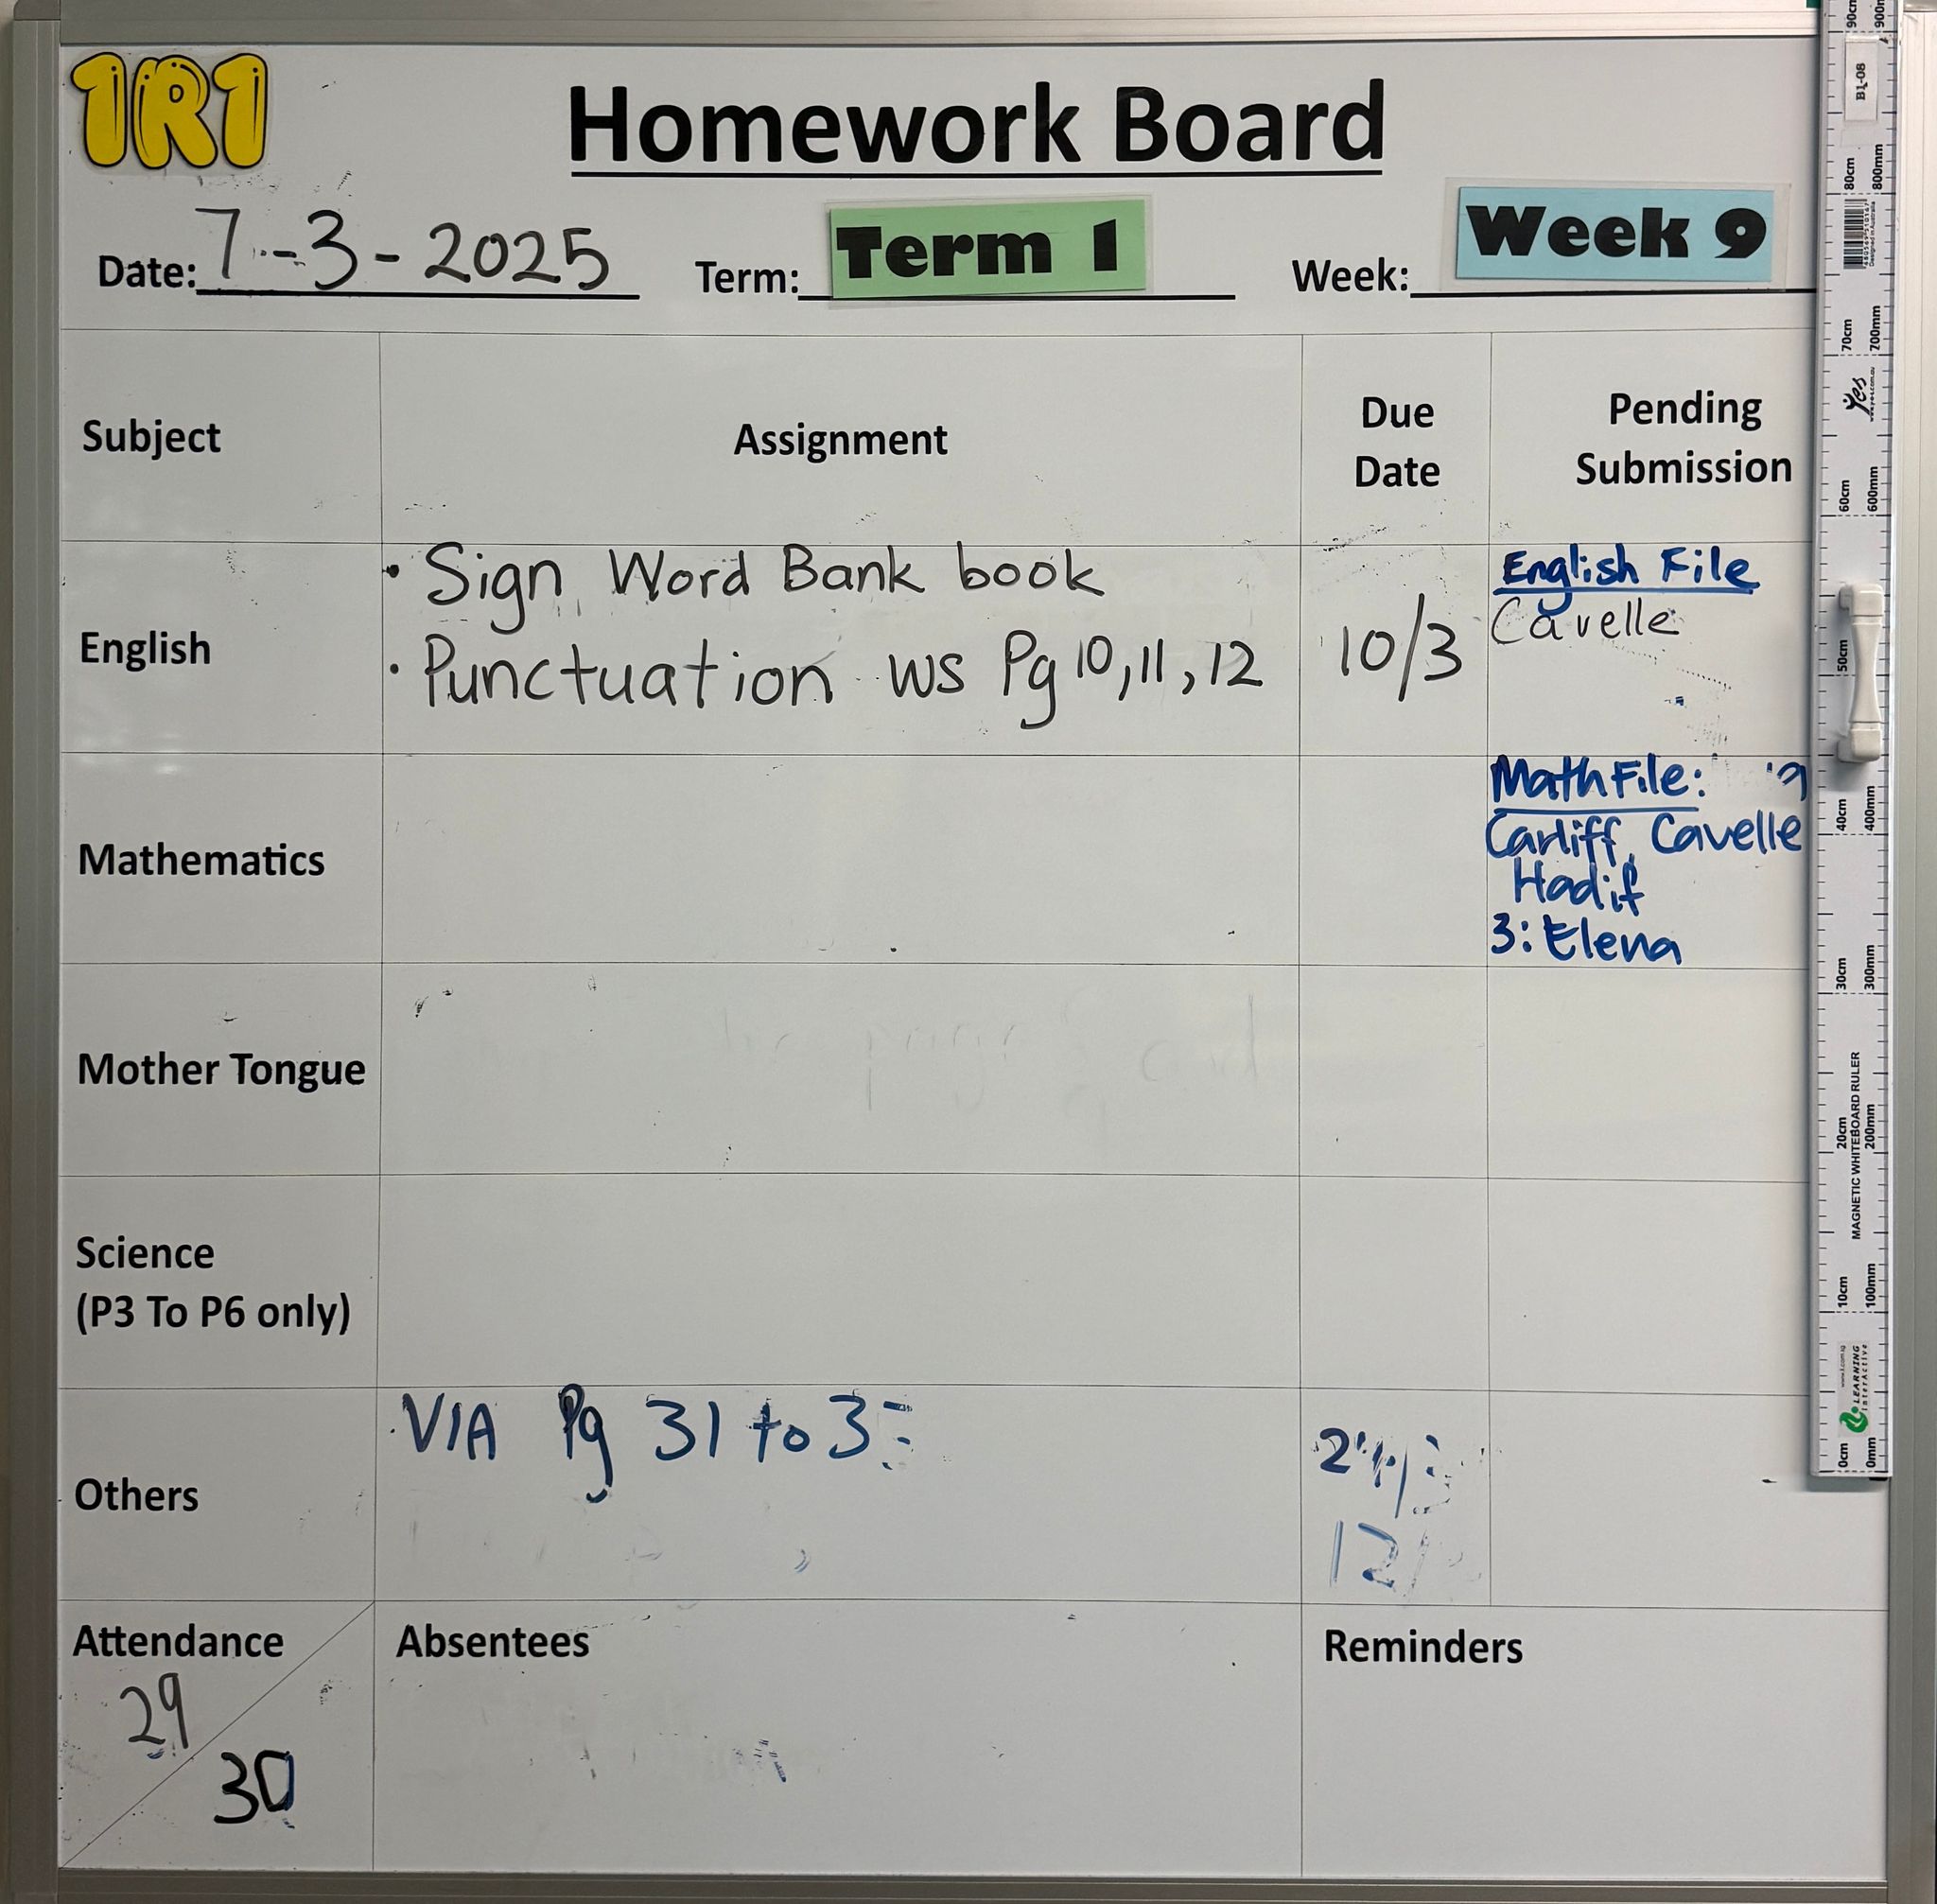 1R1
Homework Board
Date: 7-3-2025 Term: Term 1 Week: Week 9
Subject
Assignment
Due
Date
Pending
Submission
English
• Sign Word Bank book
• Punctuation ws Pg 10, 11, 12
10/3
English File
Cavelle
Mathematics
Math File:
Carliff, Cavelle
Hadif
3: Elena
Mother Tongue
Science
(P3 To P6 only)
Others
VIA Pg 31 to
Attendance
29
30
Absentees
Reminders
B1-08
90cm
80cm 800mm
70cm 700mm
Yes
60cm 600mm
50cm
40cm 400mm
30cm 300mm
20cm 200mm
MAGNETIC WHITEBOARD RULER
10cm 100mm
LEARNING
Interactive
0cm 0mm